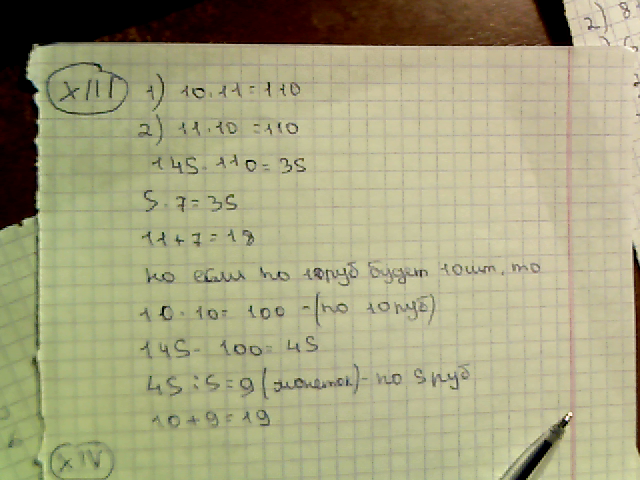 2) 8
XIII 1) 10·11=110
2) 11·10=110
145-110=35
5·7=35
11+7=18
но если по 10руб будет 10шт. то
10·10=100-(по 10руб)
145-100=45
45:5=9(монеток)-по 5руб
10+9=19
XIV